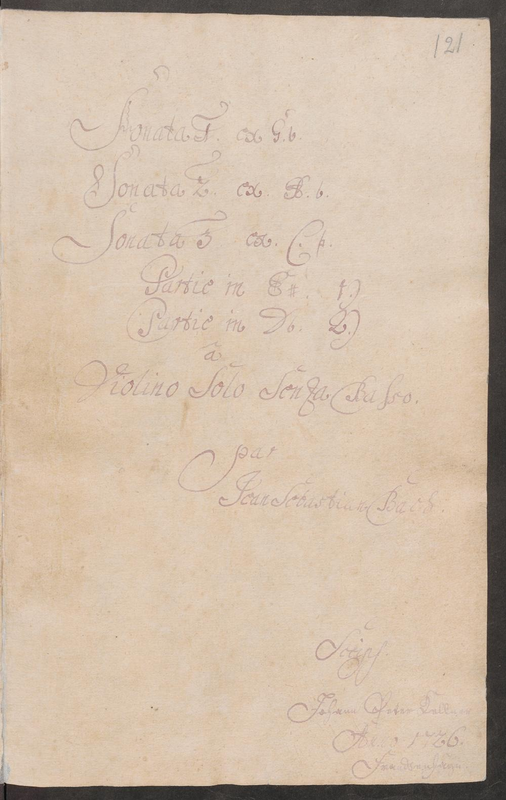 121
Sonata 1. ex G.b.
Sonata 2. ex A. b.
Sonata 3 ex. C. ♮.
Partie in E♯ 1.)
Partie in Db. 2.)
à
Violino Solo Senza Basso.
par
Jean Sebastian Bach.
Scrips.
Johann Peter Kellner
Anno 1726.